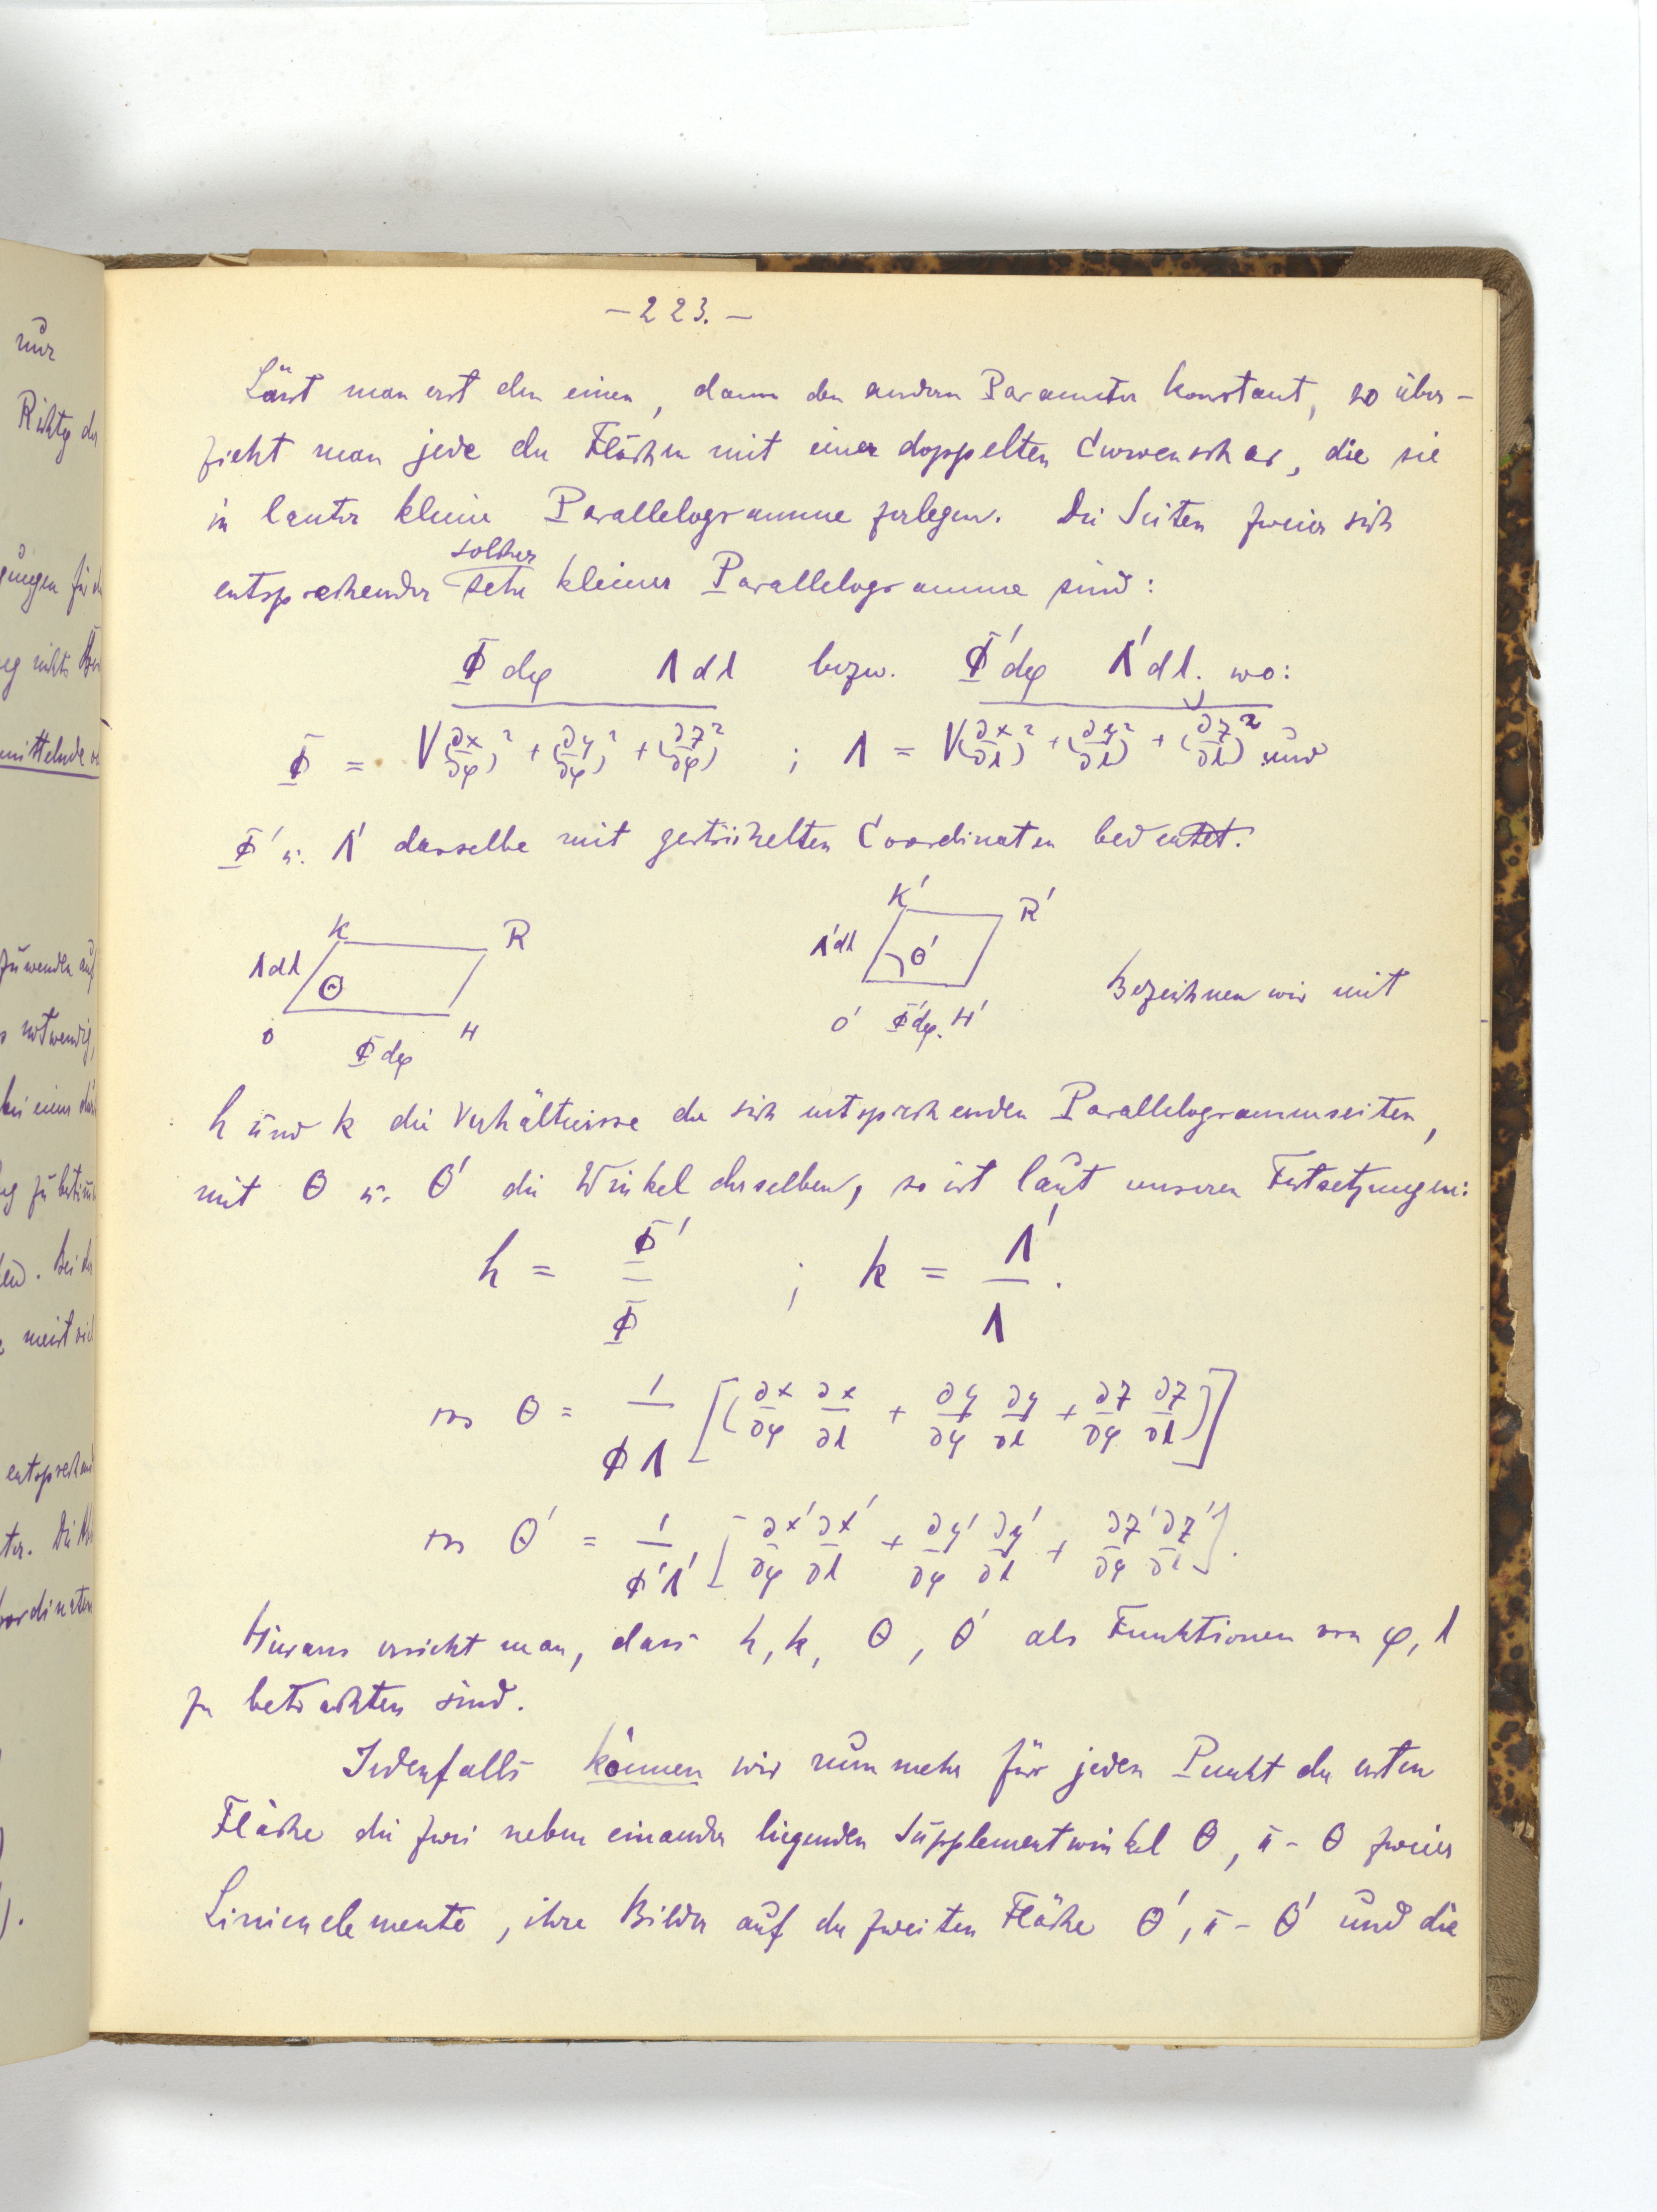 – 223. –
Lässt man erst den einen, dann den andern Parameter konstant, so über-
zieht man jede der Flächen mit einer doppelten Curvenschar, die sie
in lauter kleine Parallelogramme zerlegen. Die Seiten zweier sich
solcher
entsprechender sehr kleiner Parallelogramme sind:
Φ dφ   Λ dλ   bezw.   Φ' dφ   Λ' dλ, wo:
Φ = √(∂x/∂φ)² + (∂y/∂φ)² + (∂z/∂φ)² ; Λ = √(∂x/∂λ)² + (∂y/∂λ)² + (∂z/∂λ)² und
Φ' u. Λ' dasselbe mit gestrichelten Coordinaten bedeutet.
K R
Λdλ Θ
O H
Φ dφ
K' R'
Λ'dλ Θ'
O' Φ'dφ. H'
Bezeichnen wir mit
h und k die Verhältnisse der sich entsprechenden Parallelogrammseiten,
mit Θ u. Θ' die Winkel derselben, so ist laut unseren Festsetzungen:
h = Φ'/Φ ; k = Λ'/Λ .
cos Θ = 1/ΦΛ [(∂x/∂φ ∂x/∂λ + ∂y/∂φ ∂y/∂λ + ∂z/∂φ ∂z/∂λ)]
cos Θ' = 1/Φ'Λ' [∂x'/∂φ ∂x'/∂λ + ∂y'/∂φ ∂y'/∂λ + ∂z'/∂φ ∂z'/∂λ].
Hieraus ersieht man, dass h, k, Θ, Θ' als Funktionen von φ, λ
zu betrachten sind.
Jedenfalls können wir nunmehr für jeden Punkt der ersten
Fläche die zwei neben einander liegenden Supplementwinkel Θ, π - Θ zweier
Linienelemente, ihre Bilder auf der zweiten Fläche Θ', π - Θ' und die
nur
Richtg der
entsprechend